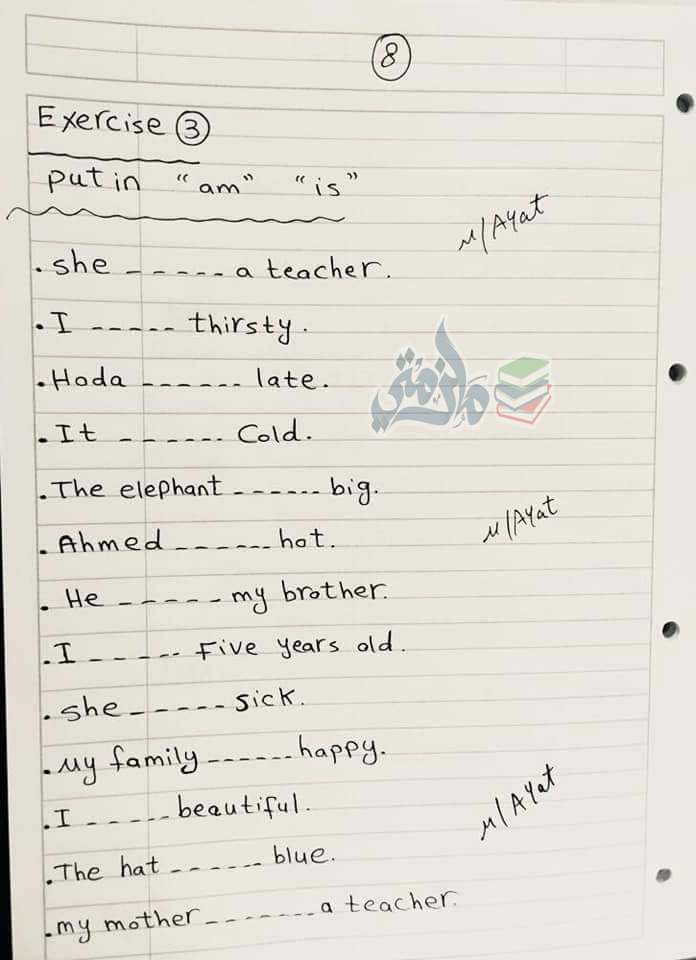 8
Exercise 3
put in "am" "is"
M/Ayat
. she ----- a teacher.
. I ----- thirsty.
. Hoda ------ late.
ملزمتي
. It ------- Cold.
. The elephant ------ big.
. Ahmed ------ hot.
M/Ayat
. He ----- my brother.
. I ----- Five years old.
. she ----- sick.
. My family ------ happy.
. I ----- beautiful.
M/Ayat
. The hat ------ blue.
. my mother ------- a teacher.